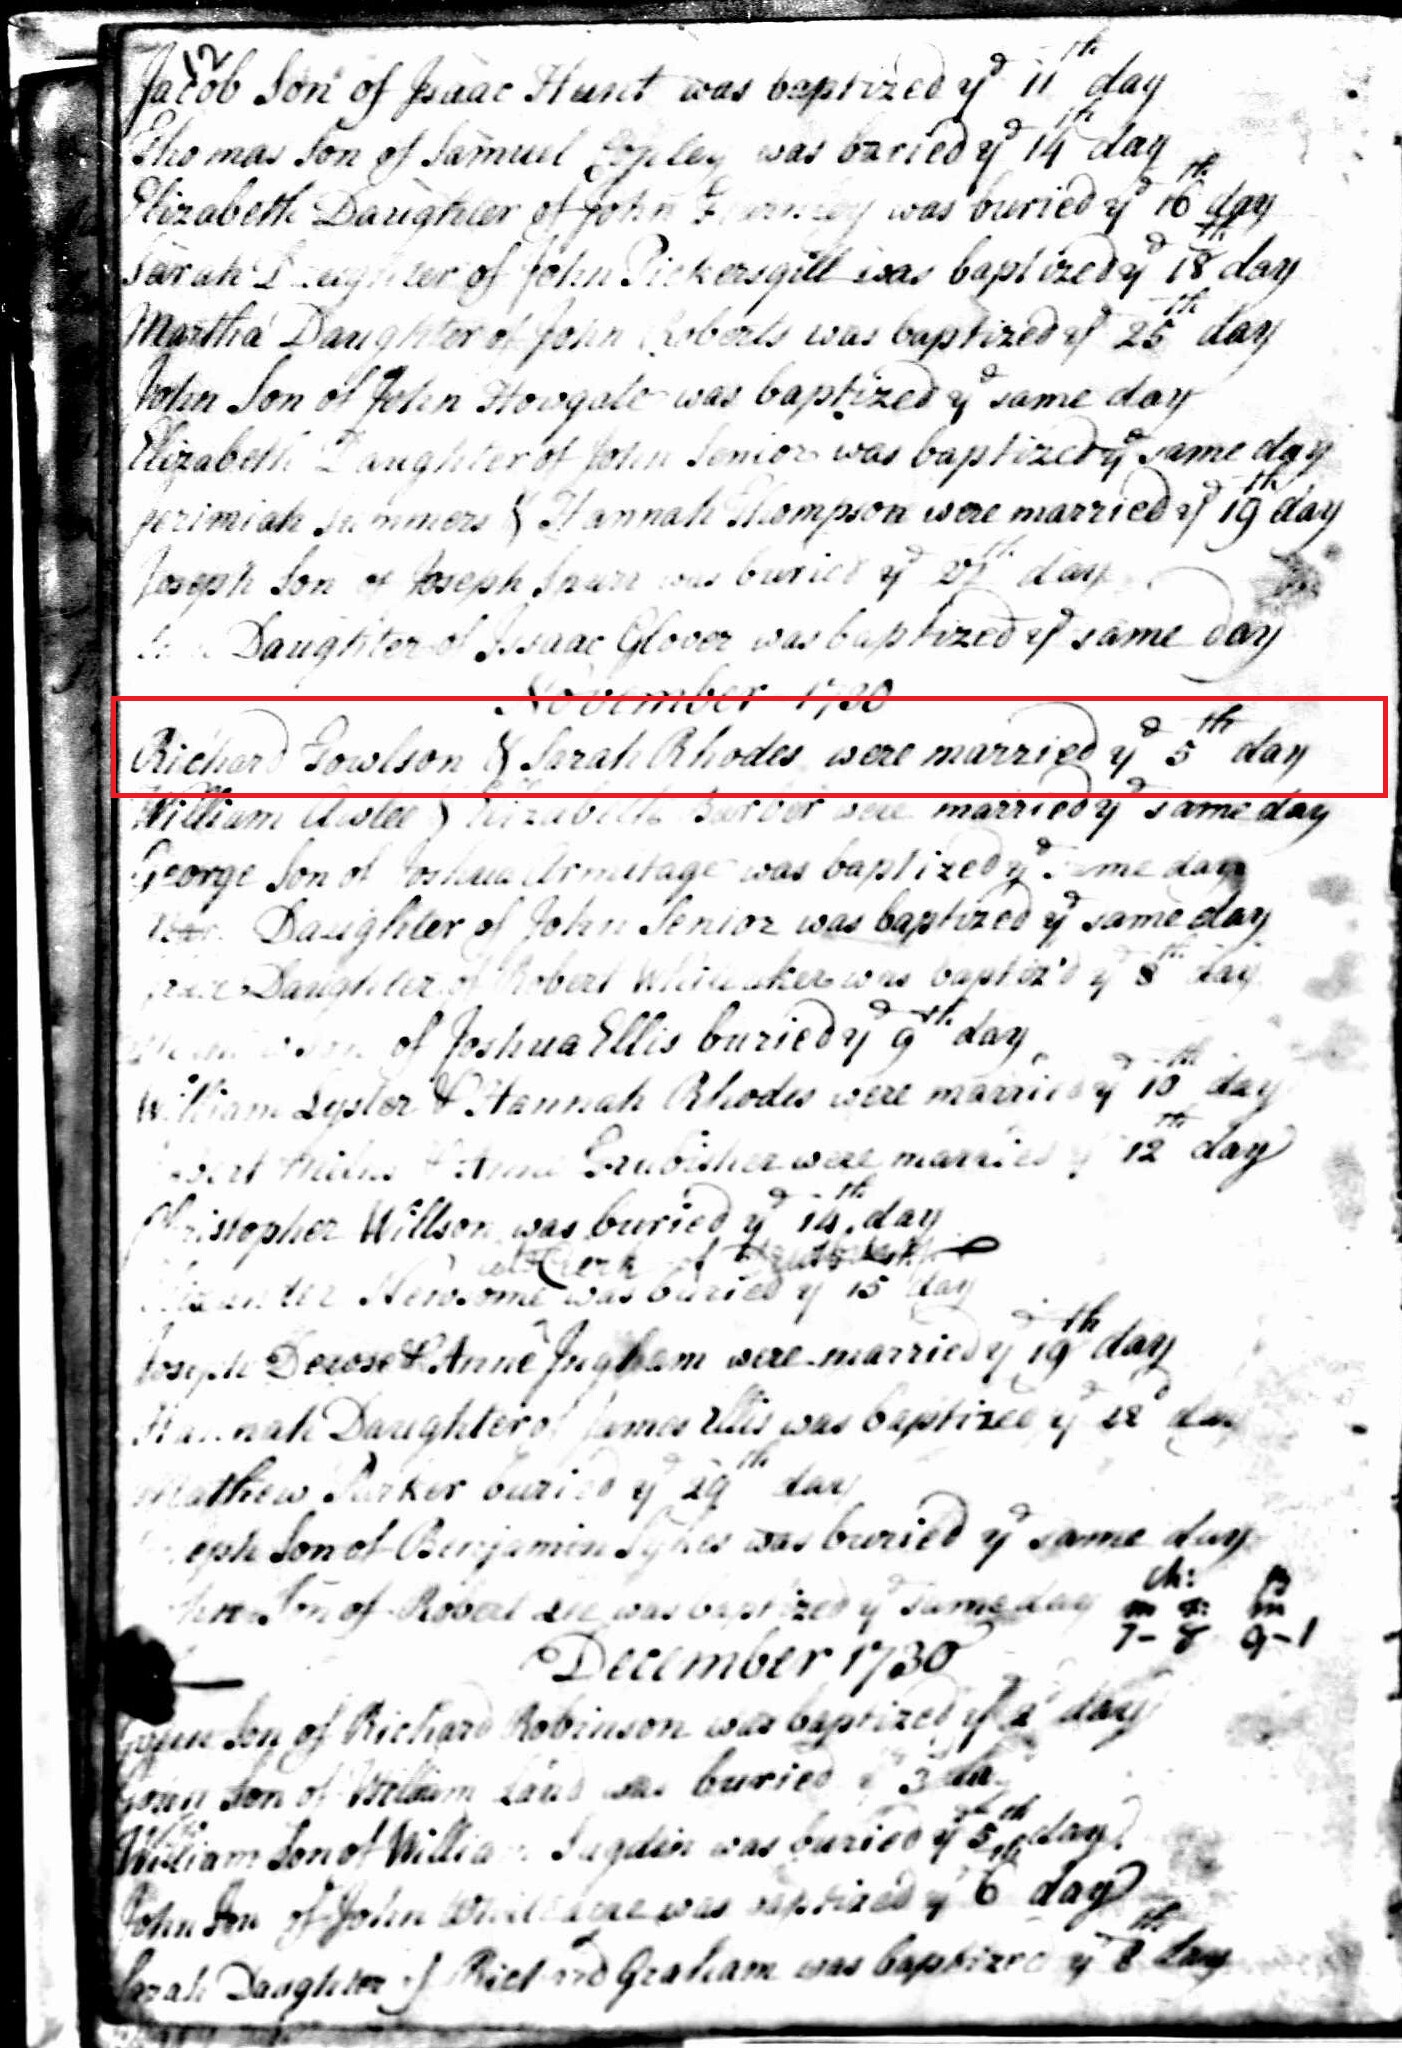 12
Jacob Son of Isaac Hunt was baptized yᵈ 11th day
Thomas Son of Samuel Copley was buried yᵈ 14th day
Elizabeth Daughter of John was buried yᵈ 16th day
Sarah Daughter of John Pickersgill was baptized yᵈ 18th day
Martha Daughter of John Roberts was baptized yᵈ 25th day
John Son of John Howgate was baptized yᵈ same day
Elizabeth Daughter of John Senior was baptized yᵈ same day
Jerimiah Summers & Hannah Thompson were married yᵈ 19th day
Joseph Son of Joseph was buried yᵈ day
Daughter of Issaac Glover was baptized yᵈ same day
November 1730
Richard Gowlson & Sarah Rhodes were married yᵈ 5th day
William & Elizabeth Barber were married yᵈ same day
George Son of Joshua Armitage was baptized yᵈ same day
Daughter of John Senior was baptized yᵈ same day
Daughter of Robert Whitaker was baptiz'd yᵈ 8th day
of Joshua Ellis buried yᵈ 9th day
William Lyster & Hannah Rhodes were married yᵈ 10th day
& Anne were married yᵈ 12th day
Christopher Willson was buried yᵈ 14th day
Clerk of
Newsome was buried yᵈ 15 day
Joseph Dewse & Anne Ingham were married yᵈ 19th day
Hannah Daughter of James Ellis was baptized yᵈ 22d day
Mathew Parker buried yᵈ 29th day
Joseph Son of Benjamin Sykes was buried yᵈ same day
Son of Robert was baptized yᵈ same day
7-8 9-1
December 1730
Son of Richard Robinson was baptized yᵈ day
John Son of William was buried yᵈ 3 day
William Son of William Sugden was buried yᵈ 5th day
John Son of John was baptized yᵈ 6th day
Sarah Daughter of Richard Graham was baptized yᵈ 8th day